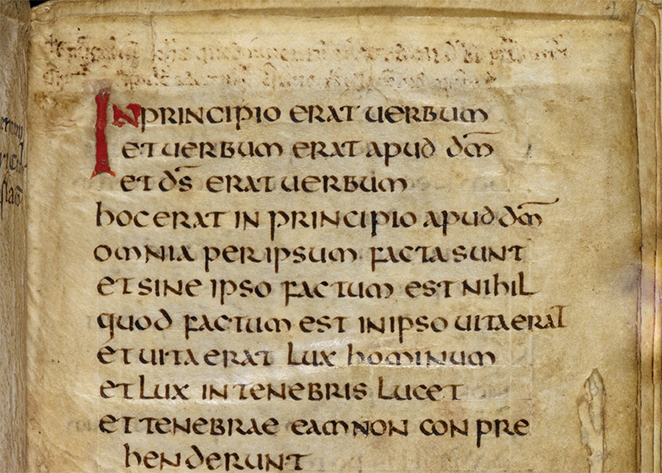 IN PRINCIPIO ERAT UERBUM
ET UERBUM ERAT APUD DM̅
ET DS̅ ERAT UERBUM
HOC ERAT IN PRINCIPIO APUD DM̅
OMNIA PER IPSUM FACTA SUNT
ET SINE IPSO FACTUM EST NIHIL
QUOD FACTUM EST IN IPSO UITA ERAT
ET UITA ERAT LUX HOMINUM
ET LUX IN TENEBRIS LUCET
ET TENEBRAE EAM NON CON PRE
HENDERUNT